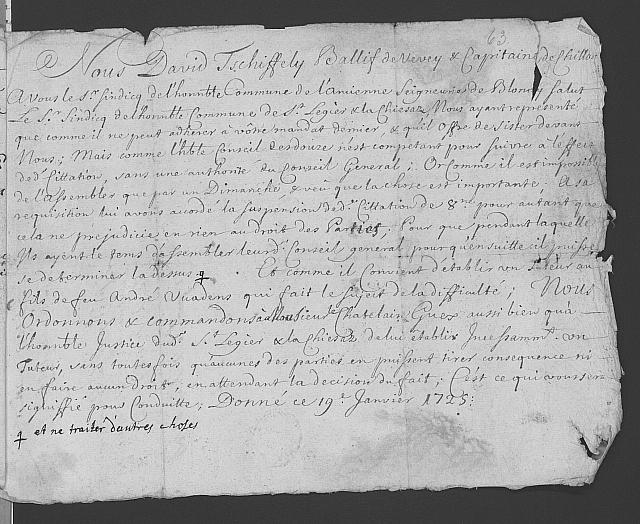 63
Nous David Tschiffely Ballif de Vevey & Capitaine de Chillon
A vous le Sr. Sindicq de l'honnble Commune de l'amienne Seigneurie de Blonay Salut
Le Sr. Sindicq de l'honnble Commune de St. Legier & la Chiesaz Nous ayant representé
que comme il ne peut adherer à vôtre mandat dernier, & qu'il offre de sister devant
Nous; Mais comme l'hble Conseil des douze n'est competant pour suivre à l'effect
de dte Cittation, sans une authorité du Conseil General; Or comme il est impossible
de l'assembler que par un Dimanche, & veu que la chose est importante; A sa
requisition lui avons acordé la suspension de de. Cittation de 8ne pour autant que
cela ne prejudicie en rien au droit des Parties; Pour que pendant laquelle
Ils ayent le tems d'assembler leur dt. Conseil general, pour qu'en suitte il puisse
se determiner la dessus ‡ Et comme il convient d'établir un Tuteur au
fils de feu André Vuadens qui fait le sujet de la difficulté; Nous
Ordonnons & commandons à Monsieur le Chatelain Guex aussi bien qu'à
l'honnble Justice dudt. St. Legier & la Chiesaz de lui établir Incessammt. un
Tuteur, sans toutesfois qu'aucunes des parties en puissent tirer consequence ni
en faire aucun Droit, en attendant la decision du fait; C'est ce qui vous sera
signiffié pour Conduitte; Donné ce 19e. Janvier 1725:
‡ et ne traiter d'autres choses